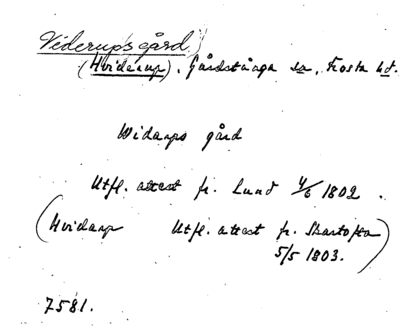 Viderups gård)
(Hviderup), Gårdstånga sn, Frosta hd.
Widarps gård
Utfl. attest fr. Lund 4/6 1802.
(Hvidarp Utfl. attest fr. Skartofta)
5/5 1803.
7581.